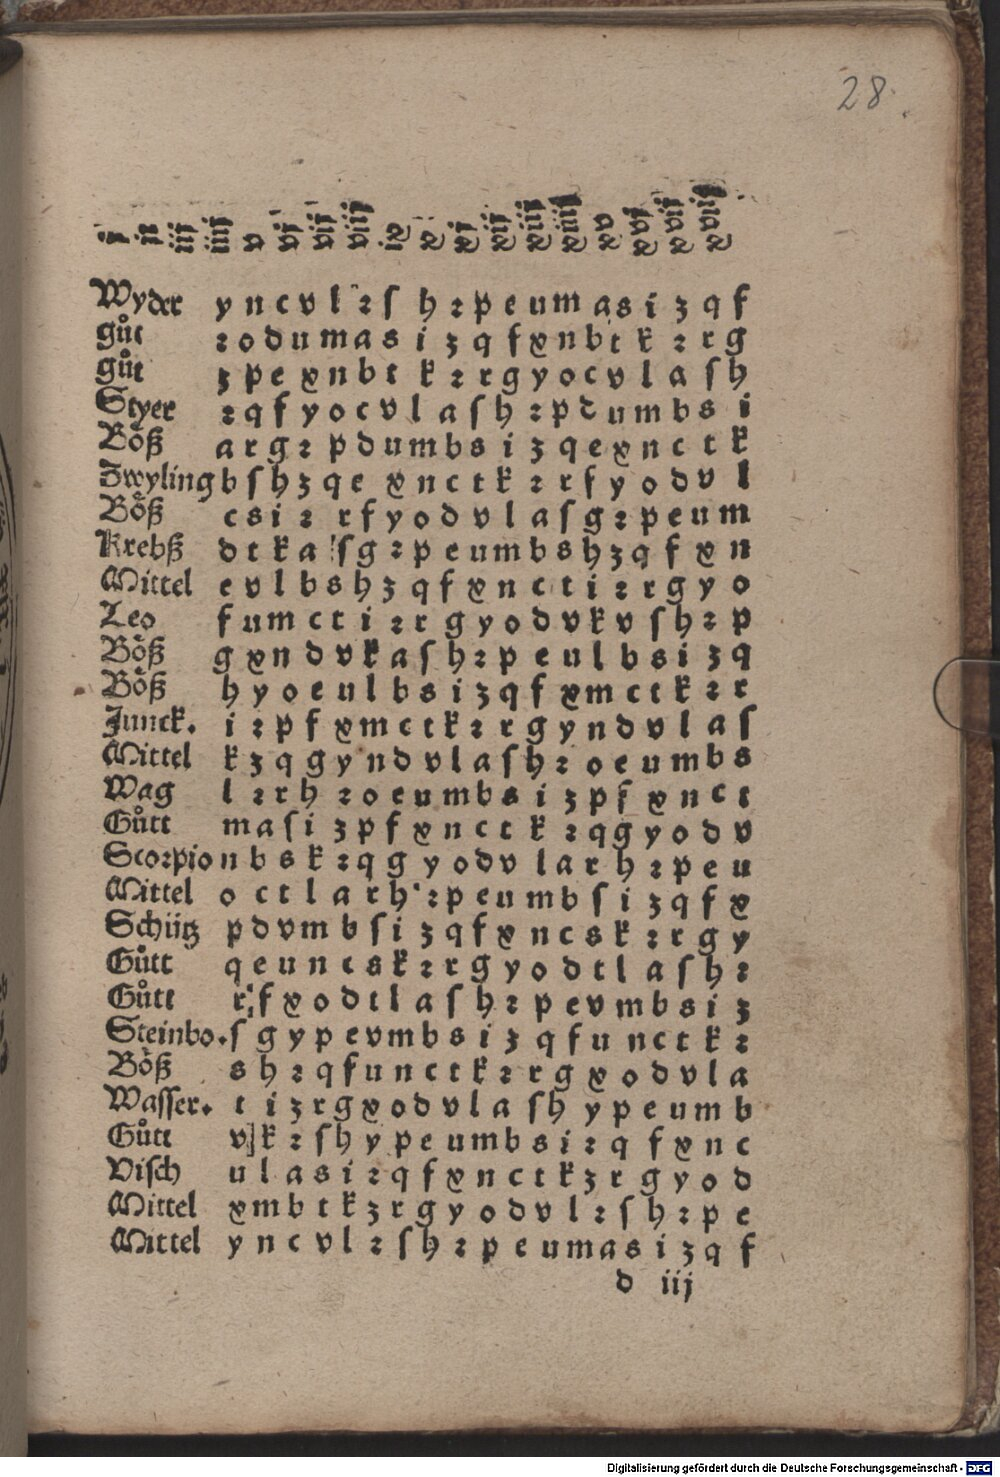 28.
j ij iij iiij v vj vij viij ix x xj xij xiij xiiij xv xvj xvij xviij
Wyder y n c v l ꝛ ſ h ꝛ p e u m a s i ʒ q f
gůt ꝛ o d u m a s i ʒ q f x n b t k ꝛ r g
gůt ʒ p e x n b t k ꝛ r g y o c v l a ſ h
Styer ꝛ q f y o c v l a ſ h ꝛ p d u m b s i
Böß a r g ꝛ p d u m b s i ʒ q e x n c t k
Zwyling b ſ h ʒ q e x n c t k ꝛ r f y o d v l
Böß c s i ꝛ r f y o d v l a ſ g ꝛ p e u m
Krebß d t k a ſ g ꝛ p e u m b s h ʒ q f x n
Mittel e v l b s h ʒ q f x n c t i ꝛ r g y o
Leo f u m c t i ꝛ r g y o d v k v ſ h ꝛ p
Böß g x n d v k a ſ h ꝛ p e u l b s i ʒ q
Böß h y o e u l b s i ʒ q f x m c t k ꝛ r
Junck. i ꝛ p f x m c t k ꝛ r g y n d v l a ſ
Mittel k ʒ q g y n d v l a ſ h ꝛ o e u m b s
Wag l ꝛ r h ꝛ o e u m b s i ʒ p f x n c t
Gůtt m a ſ i ʒ p f x n c t k ꝛ q g y o d v
Scorpio n b s k ꝛ q g y o d v l a r h ꝛ p e u
Mittel o c t l a r h ꝛ p e u m b ſ i ʒ q f x
Schütz p d v m b ſ i ʒ q f x n c s k ꝛ r g y
Gůtt q e u n c s k ꝛ r g y o d t l a ſ h ꝛ
Gůtt r f x o d t l a ſ h ꝛ p e v m b s i ʒ
Steinbo. ſ g y p e v m b s i ʒ q f u n c t k ꝛ
Böß s h ꝛ q f u n c t k ꝛ r g x o d v l a
Wasser. t i ʒ r g x o d v l a ſ h y p e u m b
Gůtt v k ꝛ ſ h y p e u m b s i ꝛ q f x n c
Visch u l a s i ꝛ q f x n c t k ʒ r g y o d
Mittel x m b t k ʒ r g y o d v l ꝛ ſ h ꝛ p e
Mittel y n c v l ꝛ ſ h ꝛ p e u m a s i ʒ q f
d iij
Digitalisierung gefördert durch die Deutsche Forschungsgemeinschaft - DFG